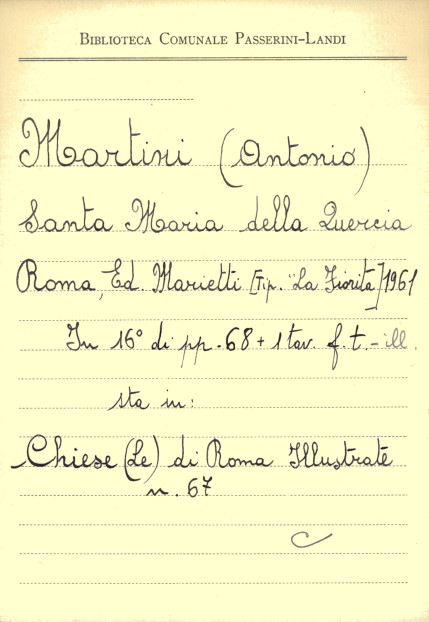 BIBLIOTECA COMUNALE PASSERINI-LANDI
Martini (Antonio)
Santa Maria della Quercia
Roma, Ed. Marietti [Tip. "La Fiorita"] 1961
In 16° di pp. 68 + 1 tav. f. t. - ill.
sta in:
Chiese (Le) di Roma Illustrate
n. 67